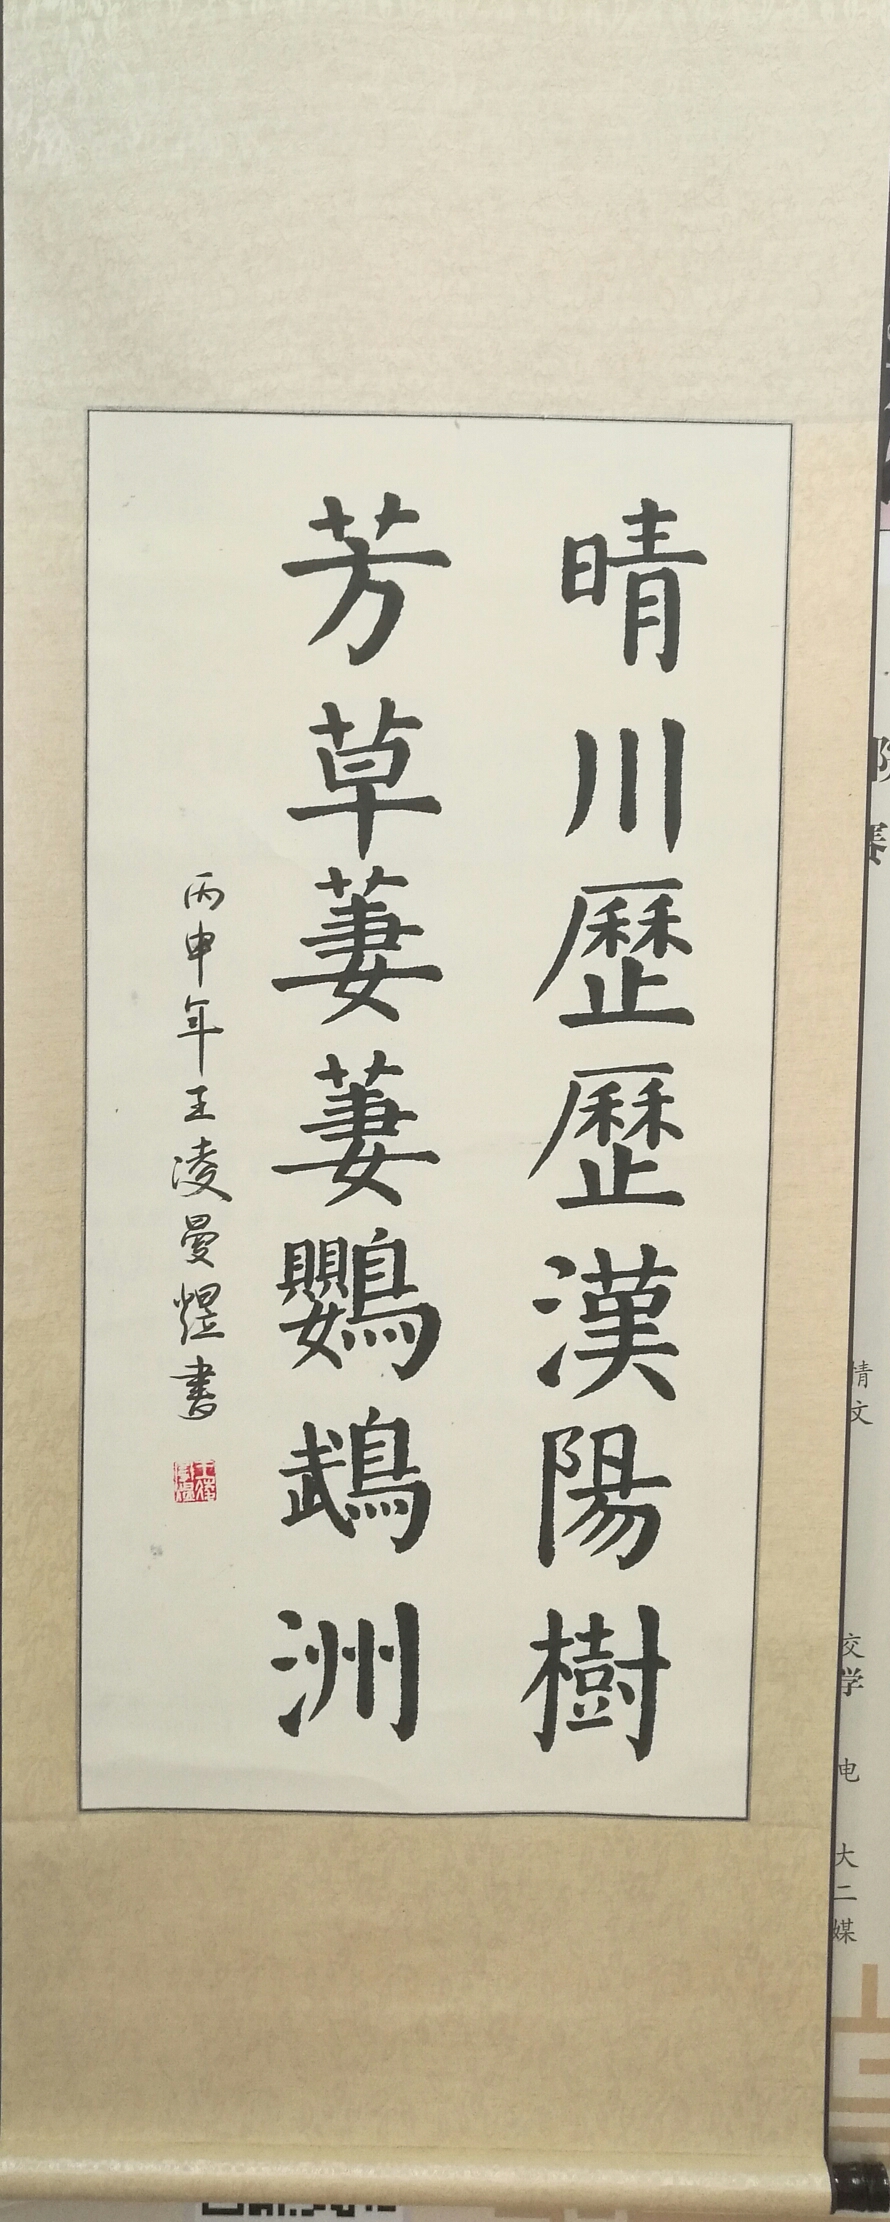 晴川歷歷漢陽樹
芳草萋萋鸚鵡洲
丙申年王凌曼煜書
情文
交学
电
大二
媒